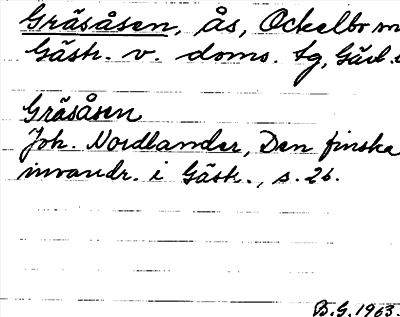 Gräsåsen, ås, Ockelbo sn
Gästr. v. doms. tg, Gävl.
Gräsåsen
Joh. Nordlander, Den finska
invandr. i Gästr., s. 26.
B.G. 1963.